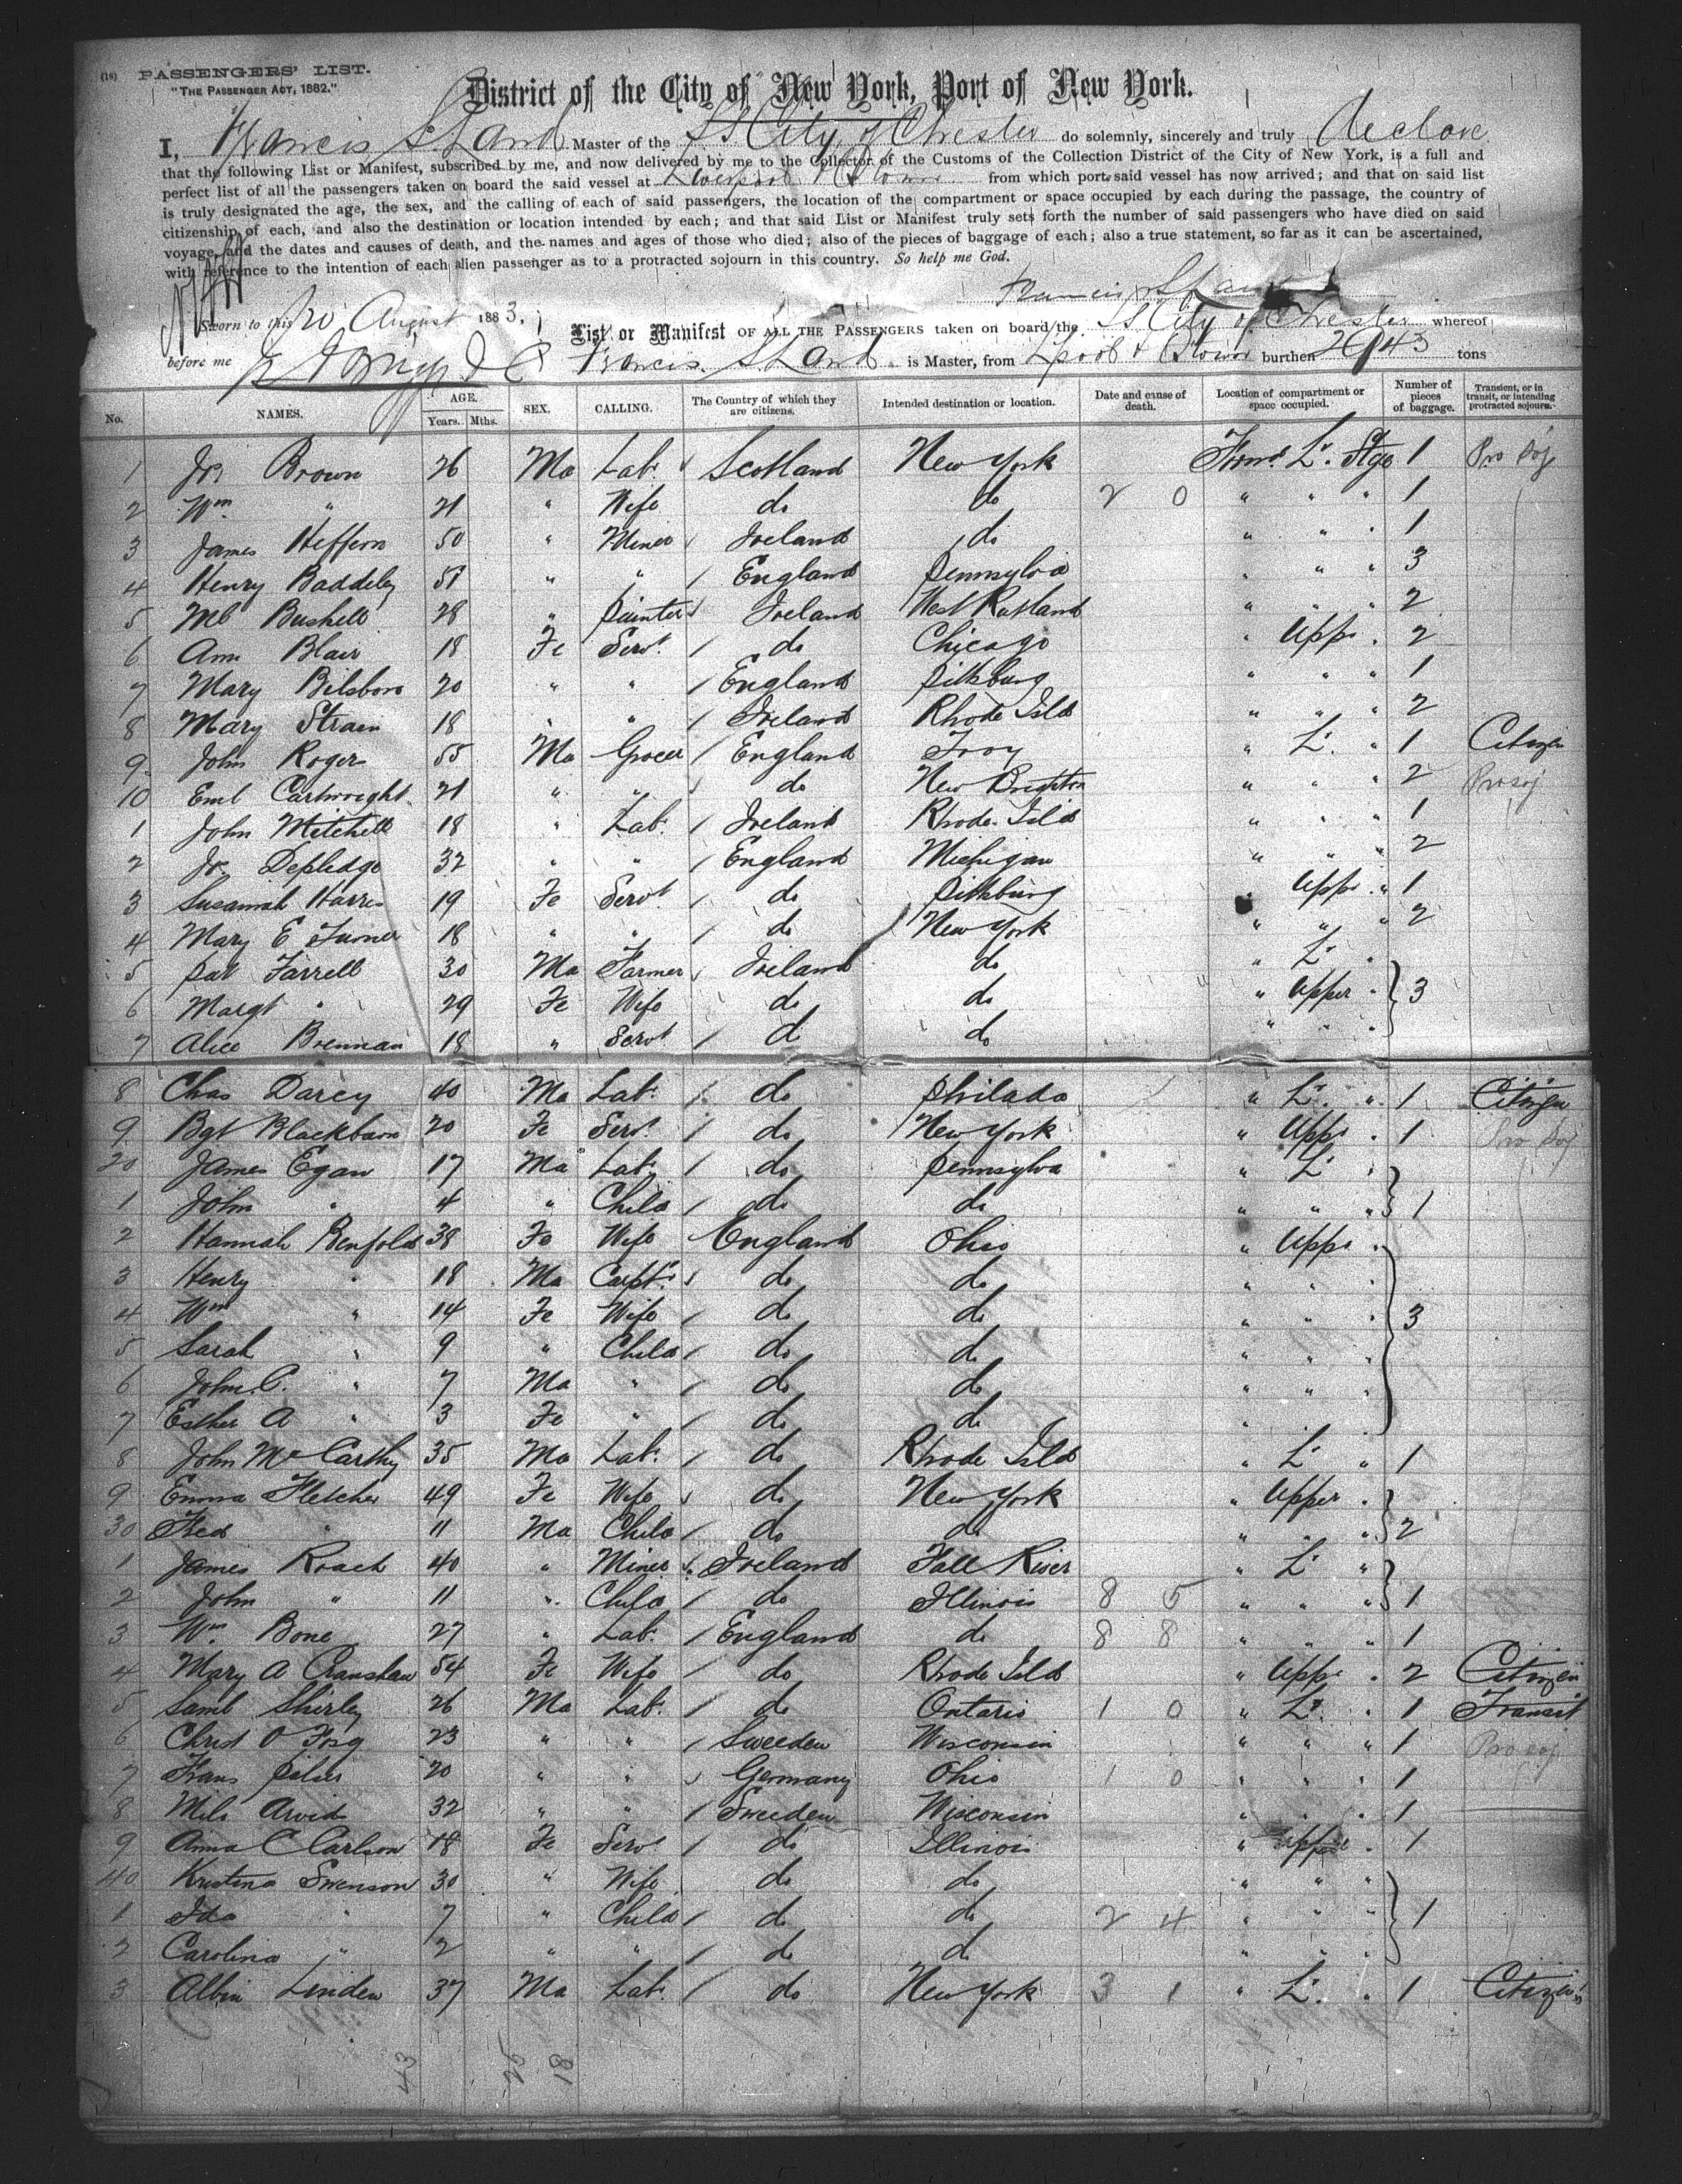 (18) PASSENGERS' LIST.
"THE PASSENGER ACT, 1882."
District of the City of New York, Port of New York.
I, Francis S Land Master of the SS City of Chester do solemnly, sincerely and truly declare
that the following List or Manifest, subscribed by me, and now delivered by me to the Collector of the Customs of the Collection District of the City of New York, is a full and
perfect list of all the passengers taken on board the said vessel at Liverpool & from which port said vessel has now arrived; and that on said list
is truly designated the age, the sex, and the calling of each of said passengers, the location of the compartment or space occupied by each during the passage, the country of
citizenship of each, and also the destination or location intended by each; and that said List or Manifest truly sets forth the number of said passengers who have died on said
voyage, and the dates and causes of death, and the names and ages of those who died; also of the pieces of baggage of each; also a true statement, so far as it can be ascertained,
with reference to the intention of each alien passenger as to a protracted sojourn in this country. So help me God.
Francis S Land
Sworn to this 20 August 1883,
List or Manifest OF ALL THE PASSENGERS taken on board the SS City of Chester whereof
before me Francis S Land is Master, from Lpool & burthen tons
No. NAMES. AGE. Years. Mths. SEX. CALLING. The Country of which they are citizens. Intended destination or location. Date and cause of death. Location of compartment or space occupied. Number of pieces of baggage. Transient, or in transit, or intending protracted sojourn.
1 Js Brown 26 Ma Labr Scotland New York Forwd Lr Stge 1 Pro Soj
2 Wm " 21 " Wife do do 2 0 " " " 1
3 James Heffern 50 " Miner Ireland do " " " 1
4 Henry Baddeley 51 " " England Pennsylva " " " 3
5 Ml Bushell 28 " Painter Ireland West Rutland " " " 2
6 Ann Blair 18 Fe Servt do Chicago " Uppr " 2
7 Mary Bilsboro 20 " " England Pittsburg " " " 1
8 Mary Strain 18 " " Ireland Rhode Isld " " " 2
9 John Roger 55 Ma Grocer England Troy " Lr " 1 Citizen
10 Eml Cartwright 21 " " do New Brighton " " " 2 Pro soj
1 John Mitchell 18 " Labr Ireland Rhode Isld " " " 1
2 Js Depledge 32 " " England Michigan " " " 2
3 Susannah Harris 19 Fe Servt do Pittsburg " Uppr " 1
4 Mary E Turner 18 " " do New York " " " 2
5 Pat Farrell 30 Ma Farmer Ireland do " Lr "
6 Margt " 29 Fe Wife do do " Upper " 3
7 Alice Brennan 18 " Servt do do " " "
8 Chas Darcy 40 Ma Labr do Philada " Lr " 1 Citizen
9 Bgt Blackburn 20 Fe Servt do New York " Uppr " 1 Pro Soj
20 James Egan 17 Ma Labr do Pennsylva " Lr "
1 John " 4 " Child do do " " " 1
2 Hannah Benfold 38 Fe Wife England Ohio " Uppr "
3 Henry " 18 Ma Carptr do do " " "
4 Wm " 14 Fe Wife do do " " " 3
5 Sarah " 9 " Child do do " " "
6 John C. " 7 Ma " do do " " "
7 Esther A " 3 Fe " do do " "
8 John McCarthy 35 Ma Labr do Rhode Isld " Lr " 1
9 Emma Fletcher 49 Fe Wife do New York " Upper "
30 Fred " 11 Ma Child do do " " " 2
1 James Roach 40 " Miner Ireland Fall River " Lr "
2 John " 11 " Child do Illinois 8 5 " " " 1
3 Wm Bone 27 " Labr England do 8 8 " " " 1
4 Mary A Cranshaw 54 Fe Wife do Rhode Isld " Uppr " 2 Citizen
5 Saml Shirley 26 Ma Labr do Ontario 1 0 " Lr " 1 Transit
6 Christ O 23 " " Sweeden Wisconsin " " " 1 Pro soj
7 Frans 20 " " Germany Ohio 1 0 " " " 1
8 Nils Arvid 32 " " Sweeden Wisconsin " " " 1
9 Anna C Carlson 18 Fe Servt do Illinois " Upper " 1
40 Kristina Swenson 30 " Wife do do " " "
1 Ida " 7 " Child do do 2 4 " " " 1
2 Carolina " 2 " " do do " " "
3 Albin Linden 37 Ma Labr do New York 3 1 " Lr " 1 Citizen
43 25 18